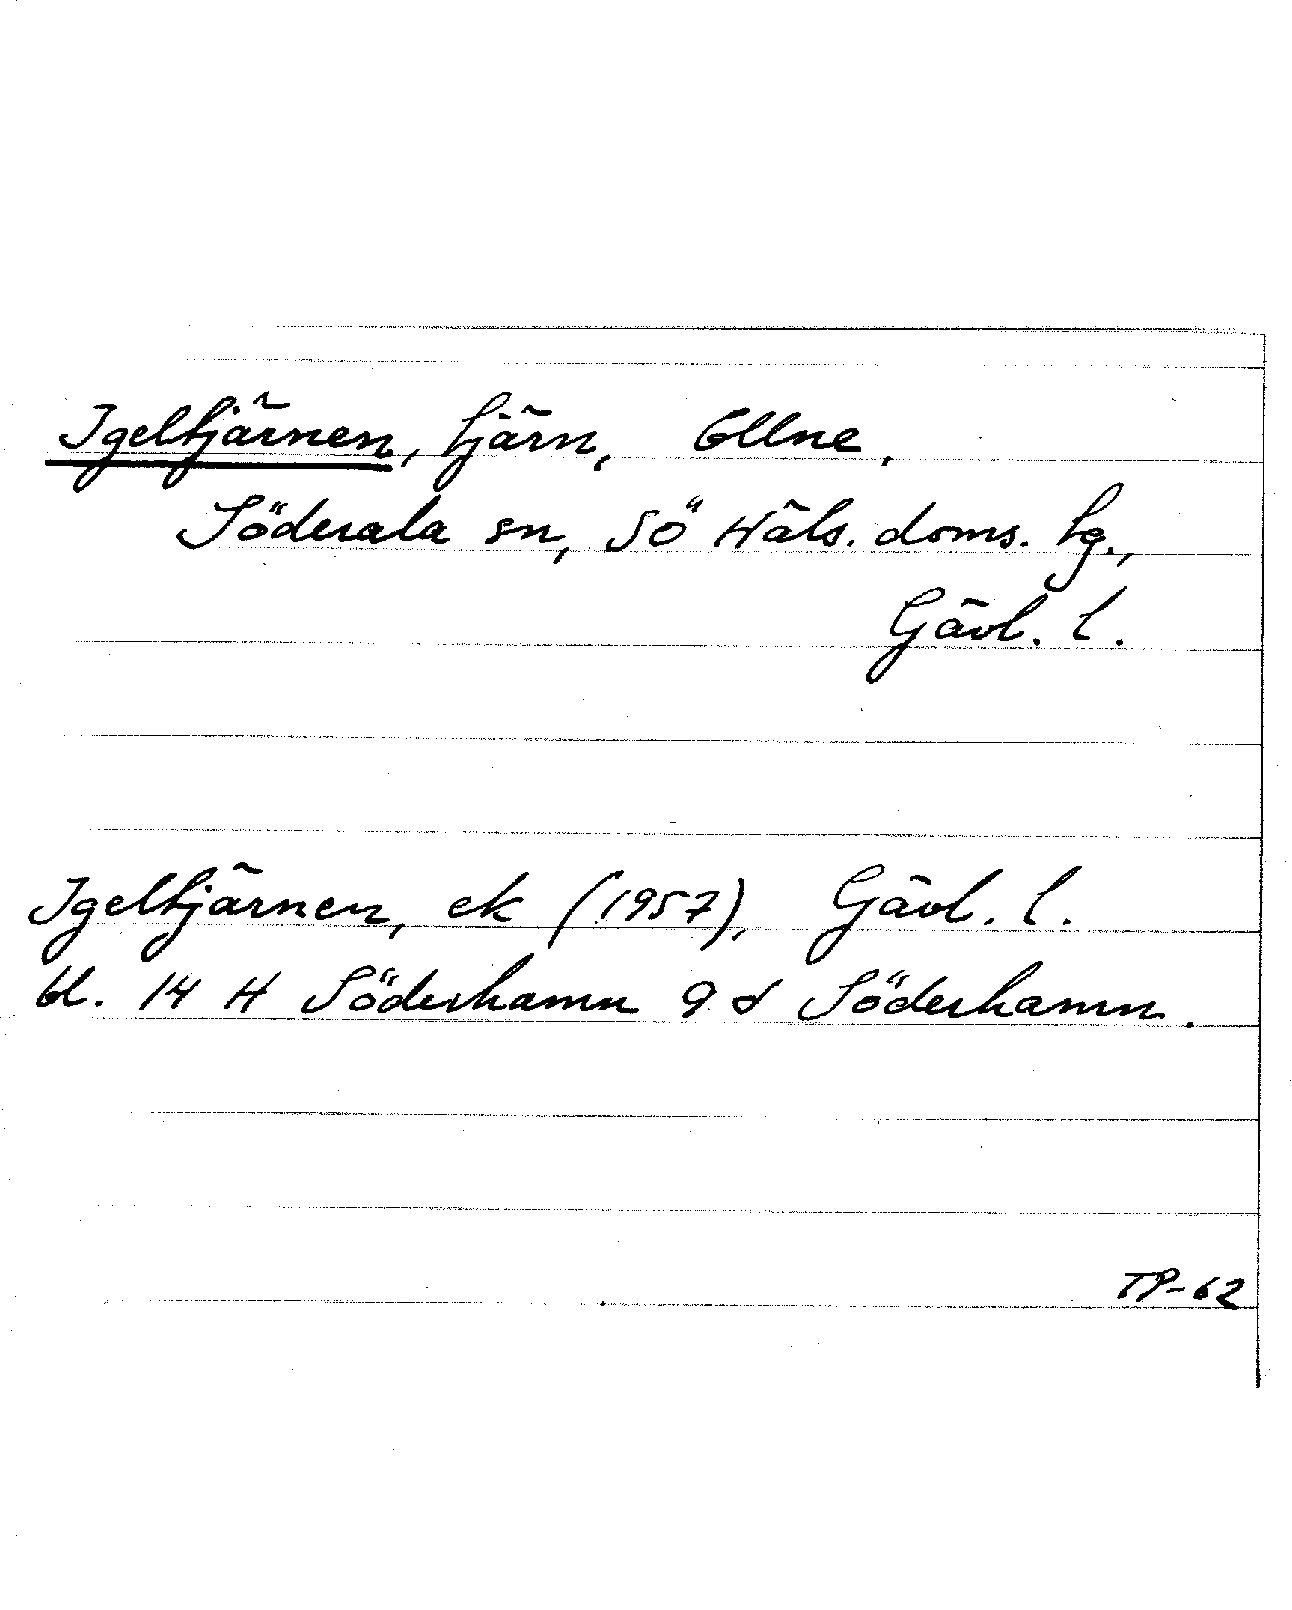 Igeltjärnen, tjärn, Ellne,
Söderala sn, SÖ Häls. doms. tg.,
Gävl. l.
Igeltjärnen, ek (1957), Gävl. l.
bl. 14 H Söderhamn 9 d Söderhamn.
TP-62